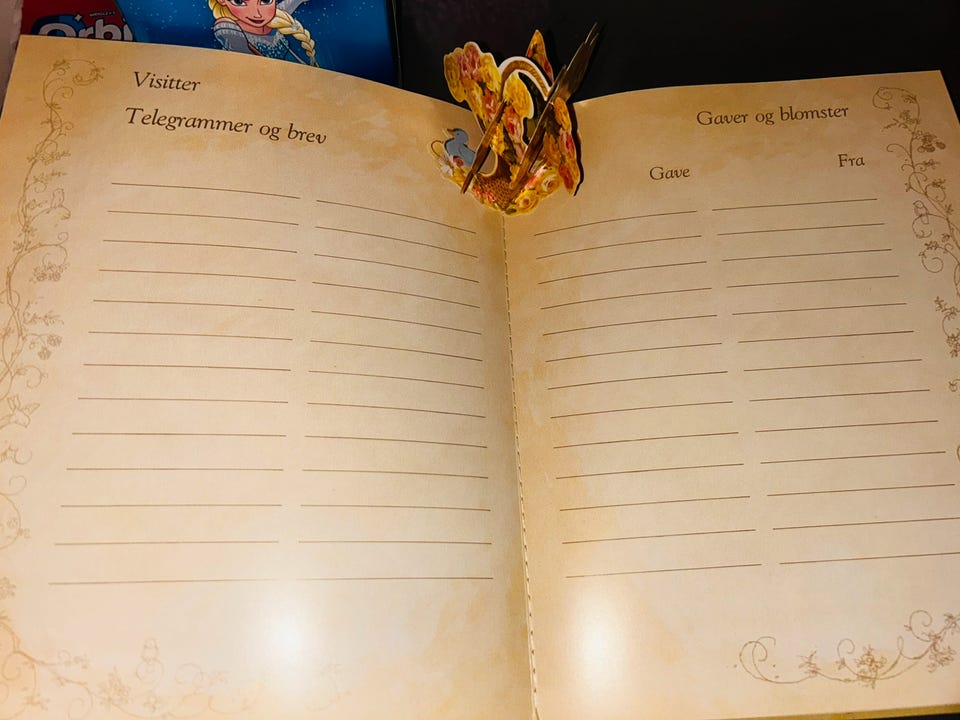 Orbi
Visitter
Telegrammer og brev
Gaver og blomster
Gave
Fra